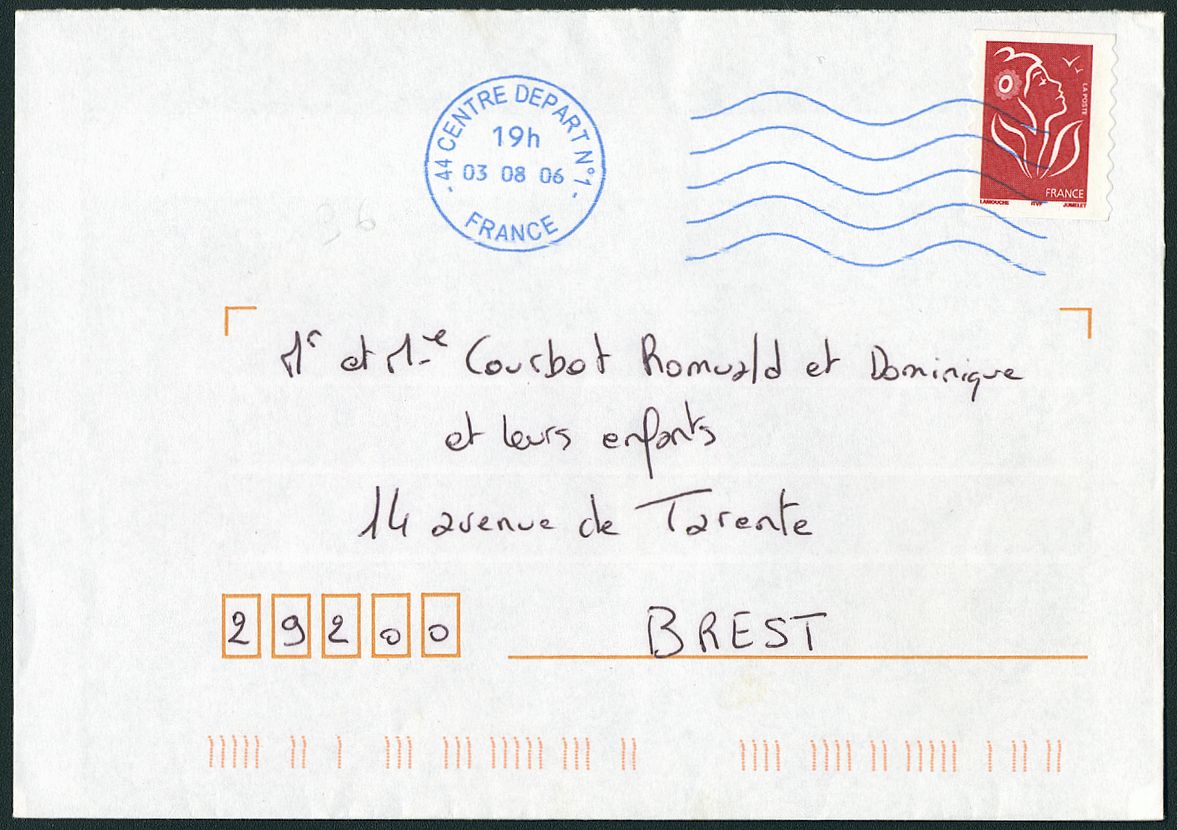 44 CENTRE DEPART N°1
19h
03 08 06
FRANCE
LA POSTE
FRANCE
LAMOUCHE ITVF JUMELET
Mr et Mme Courbot Romuald et Dominique
et leurs enfants
14 avenue de Tarente
29200 BREST